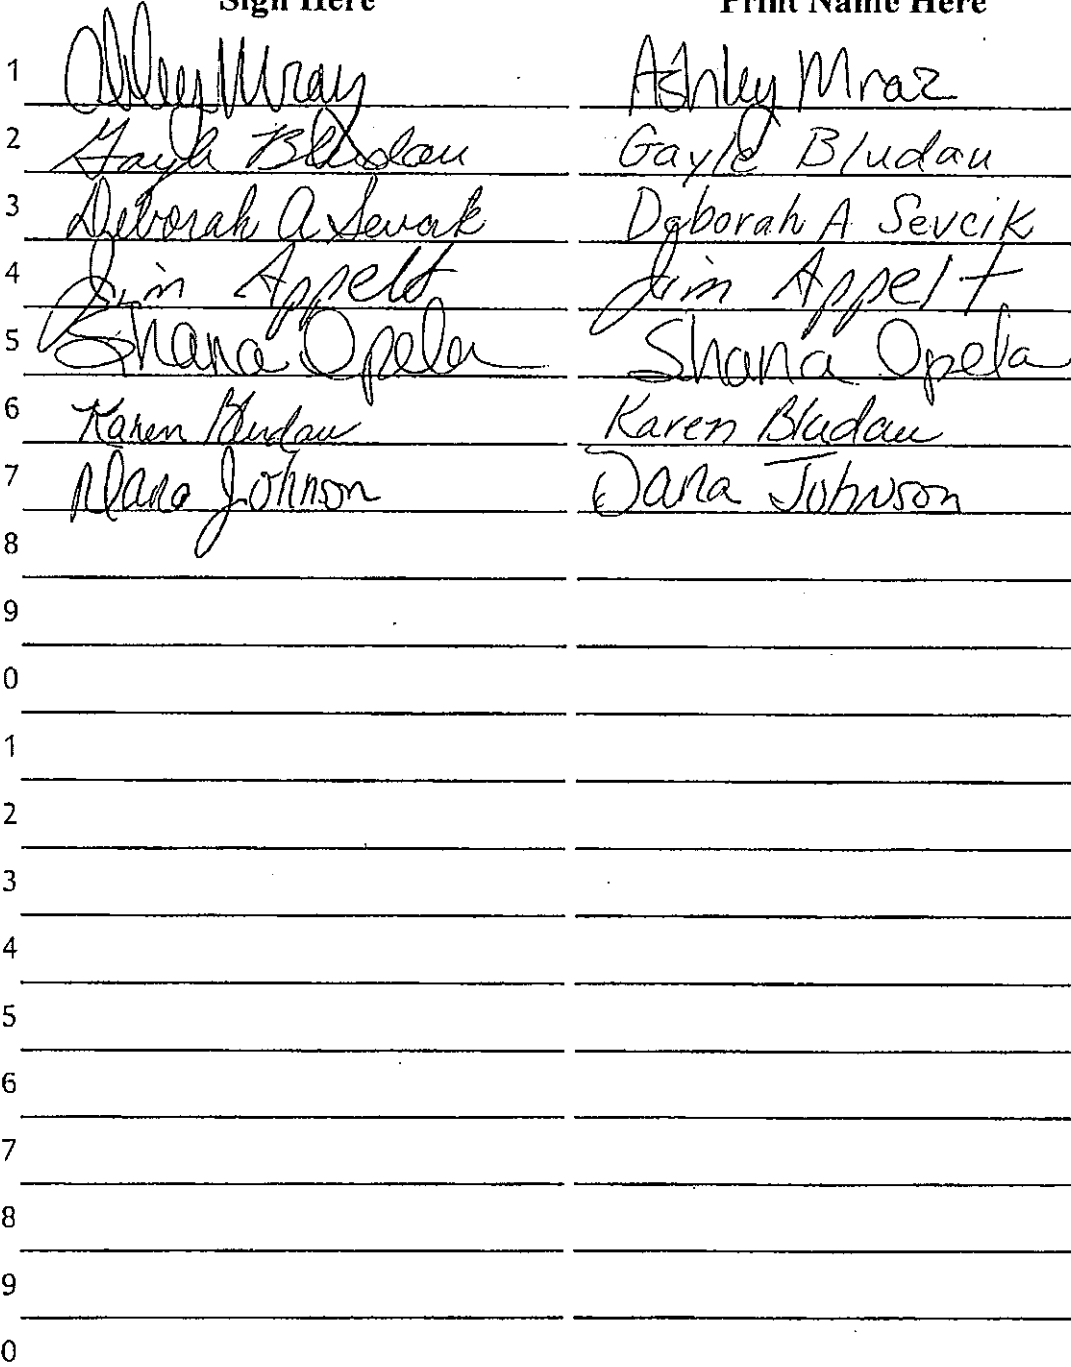 Sign Here Print Name Here
1 Ashley Mraz Ashley Mraz
2 Gayle Bludau Gayle Bludau
3 Deborah A Sevcik Deborah A Sevcik
4 Jim Appelt Jim Appelt
5 Shana Opela Shana Opela
6 Karen Bludau Karen Bludau
7 Dana Johnson Dana Johnson
8
9
0
1
2
3
4
5
6
7
8
9
0